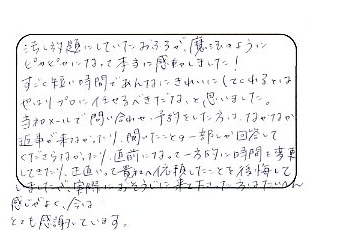 汚し放題にしていたおふろが、魔法のように
ピカピカになって本当に感動しました！
すごく短い時間であんなにきれいにしてくれるとは
やはりプロに任せるべきだな、と思いました。
当初メールで問い合わせ・予約をした方は、なかなか
返事が来なかったり、聞いたことの一部しか回答して
くださらなかったり、直前になって一方的に時間を変更
してきたり、正直いって貴社へ依頼したことを後悔して
しましたが、実際におそうじに来て下さった方はたいへん
感じがよく、今は
とても感謝しています。